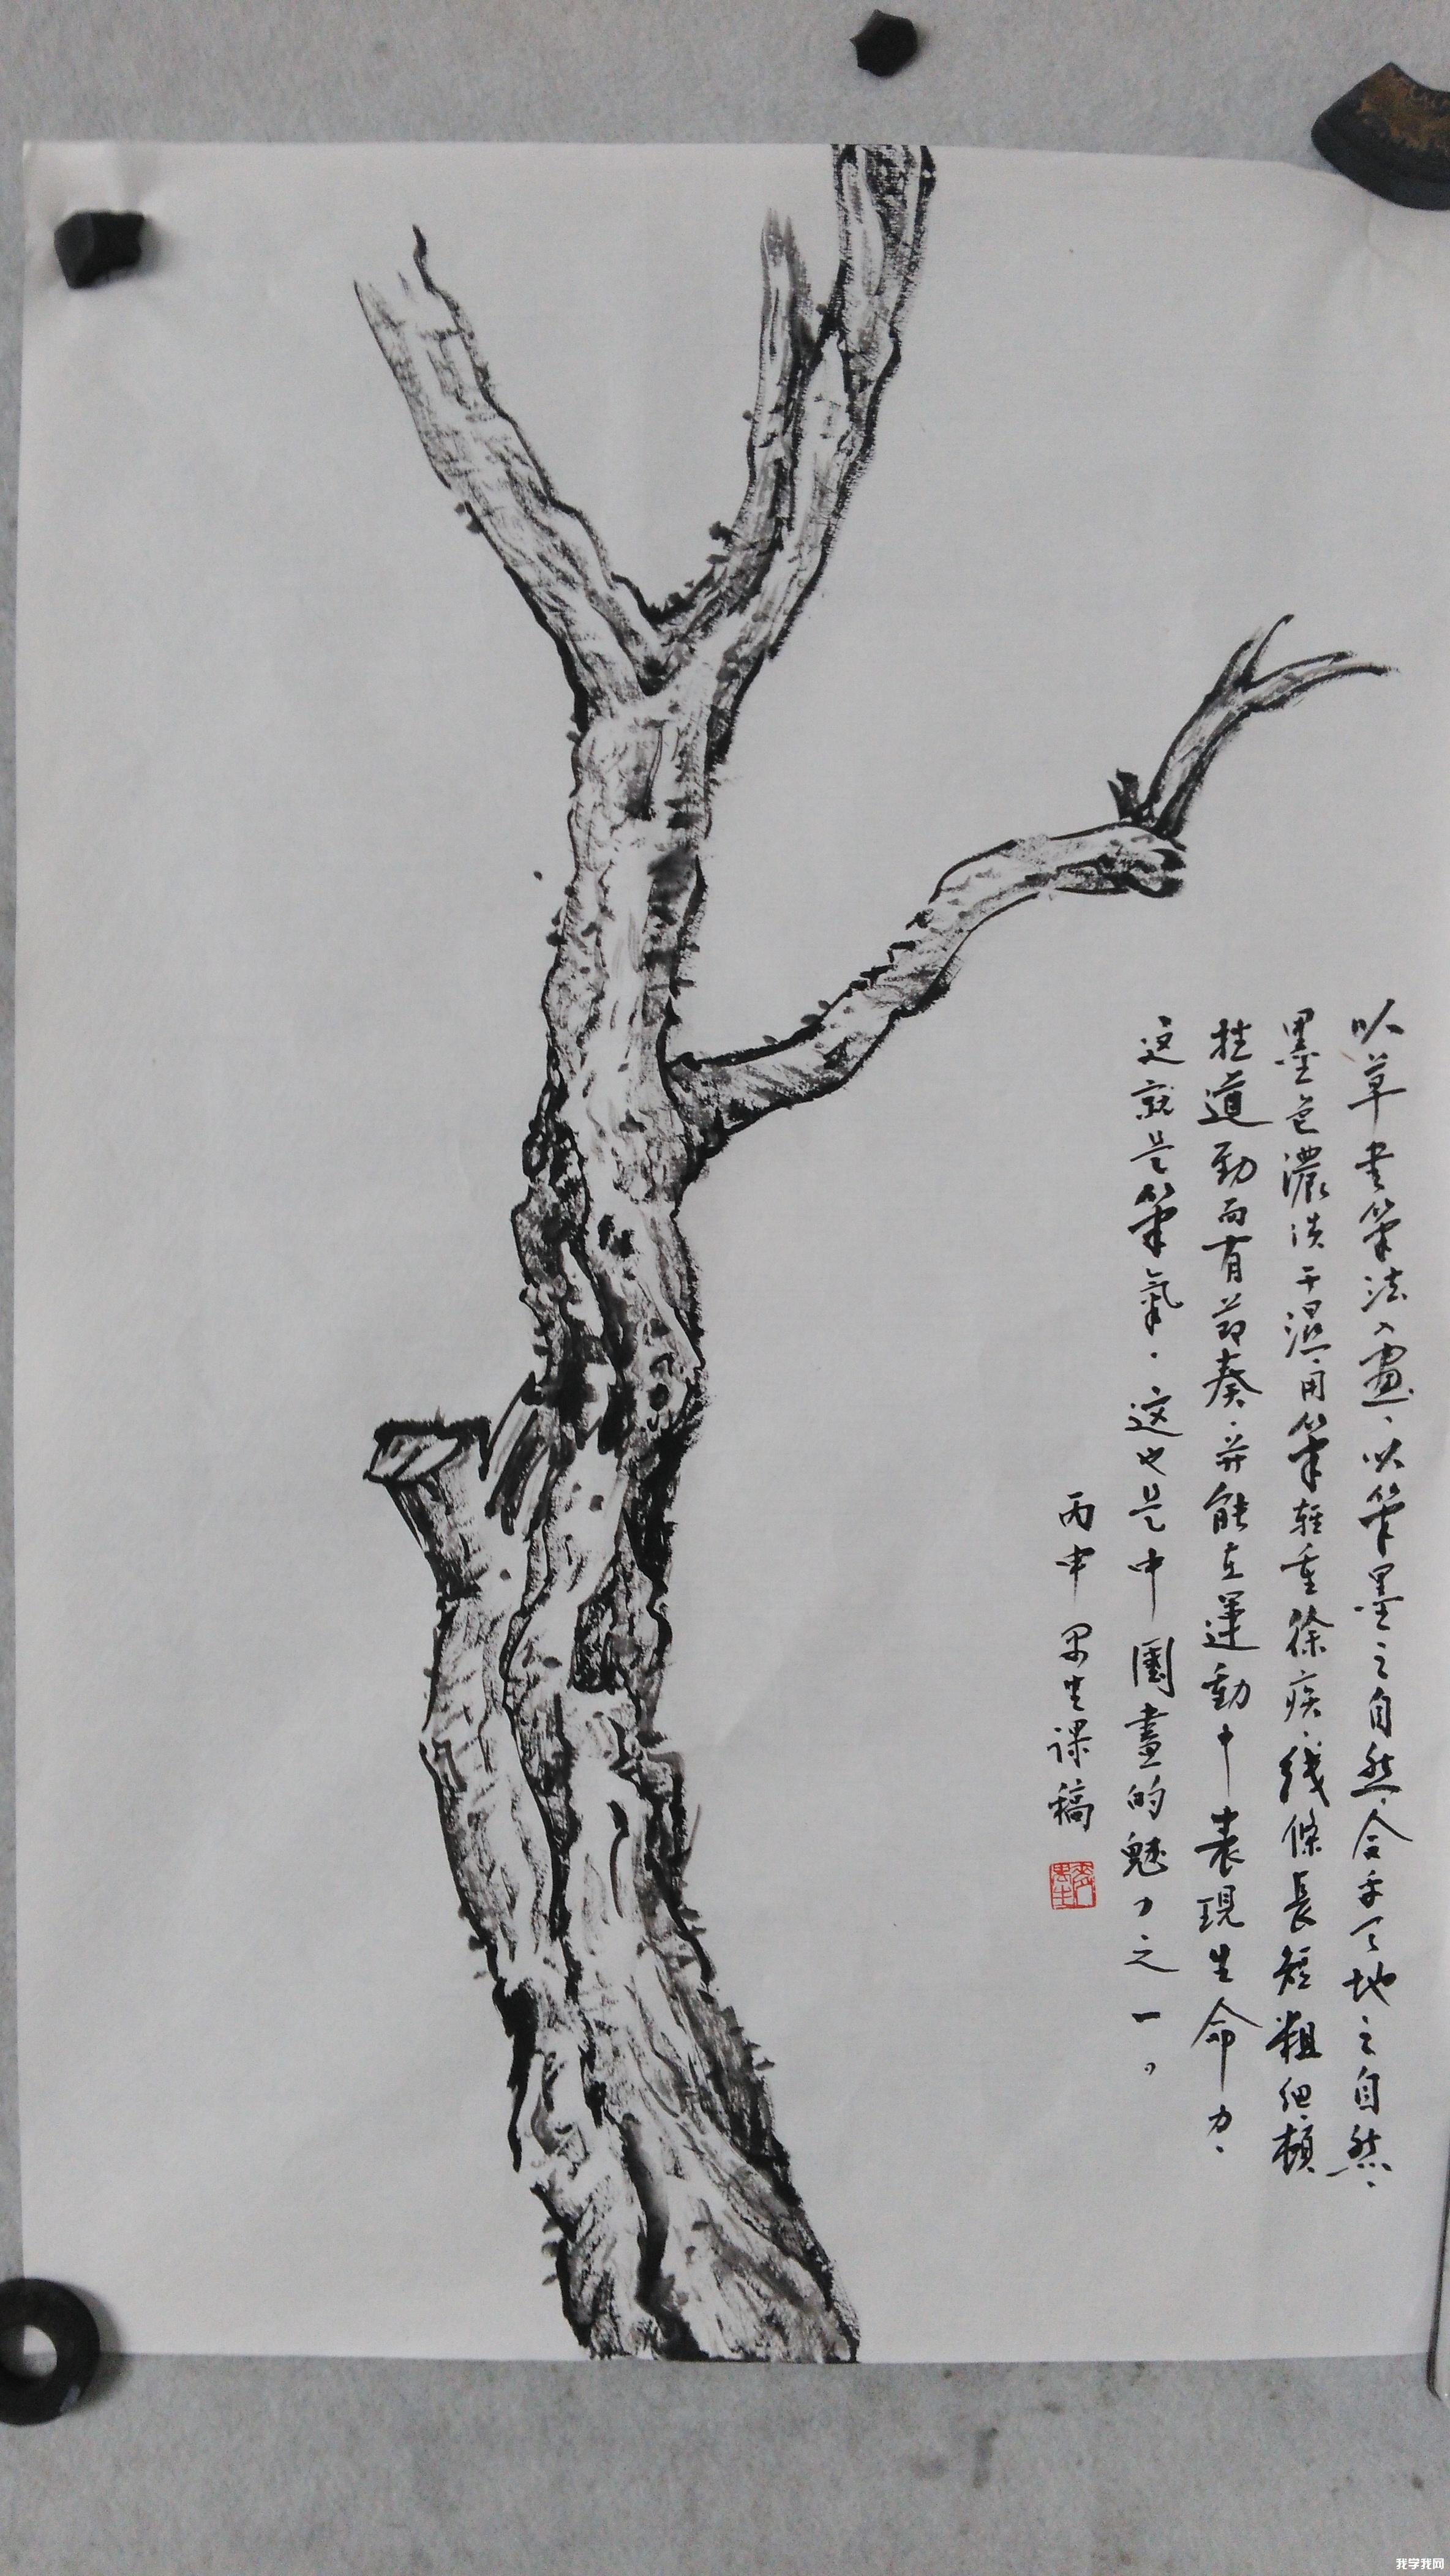 以草书筆法入畫、以筆墨之自然、合乎天地之自然、
墨色濃淡干濕、用筆轻重徐疾、线條長短粗细、横
拄遒勁而有節奏、并能在運動中表現生命力、
这就是筆氣、这也是中國畫的魅力之一。
丙申 生课稿
我学我网